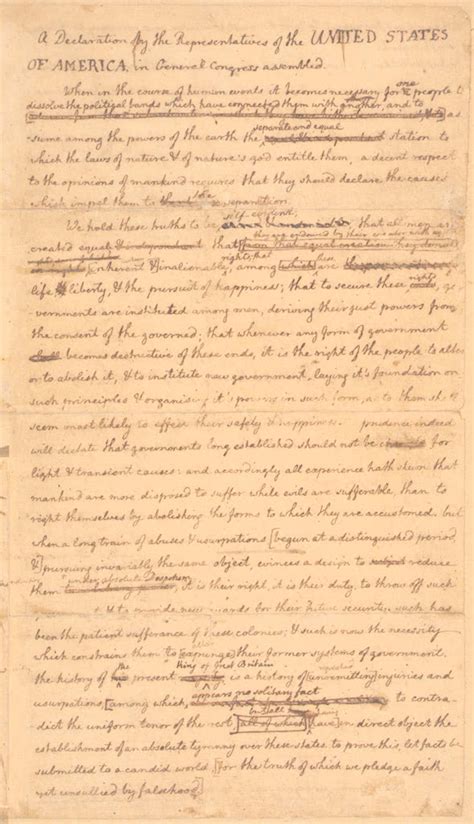 A Declaration by the Representatives of the UNITED STATES
OF AMERICA, in General Congress assembled.
When in the course of human events it becomes necessary for one people to
dissolve the political bands which have connected them with another, and to
as-
sume among the powers of the earth the separate and equal station to
which the laws of nature & of nature's god entitle them, a decent respect
to the opinions of mankind requires that they should declare the causes
which impel them to the separation.
We hold these truths to be self-evident; that all men are
created equal & independant that they are endowed by their creator with
from that equal creation they derive
rights; that these
inherent & inalienable, among which are
life & liberty, & the pursuit of happiness; that to secure these rights, go-
vernments are instituted among men, deriving their just powers from
the consent of the governed. that whenever any form of government
becomes destructive of these ends, it is the right of the people to alter
or to abolish it, & to institute new government, laying it's foundation on
such principles & organising it's powers in such form, as to them shall
seem most likely to effect their safety & happiness. prudence indeed
will dictate that governments long established should not be changed for
light & transient causes: and accordingly all experience hath shewn that
mankind are more disposed to suffer while evils are sufferable, than to
right themselves by abolishing the forms to which they are accustomed. but
when a long train of abuses & usurpations [begun at a distinguished period,
&] pursuing invariably the same object, evinces a design to subject reduce
them under absolute Despotism, it is their right, it is their duty, to throw off such
& to provide new guards for their future security. such has
been the patient sufferance of these colonies; & such is now the necessity
which constrains them to [expunge] their former systems of government.
the history of the present King of Great Britain is a history of [unremitting] injuries and
usurpations, [among which, appears no solitary fact to contra-
dict the uniform tenor of the rest [all of which] [have] in direct object the
establishment of an absolute tyranny over these states. to prove this, let facts be
submitted to a candid world, [for the truth of which we pledge a faith
yet unsullied by falsehood]